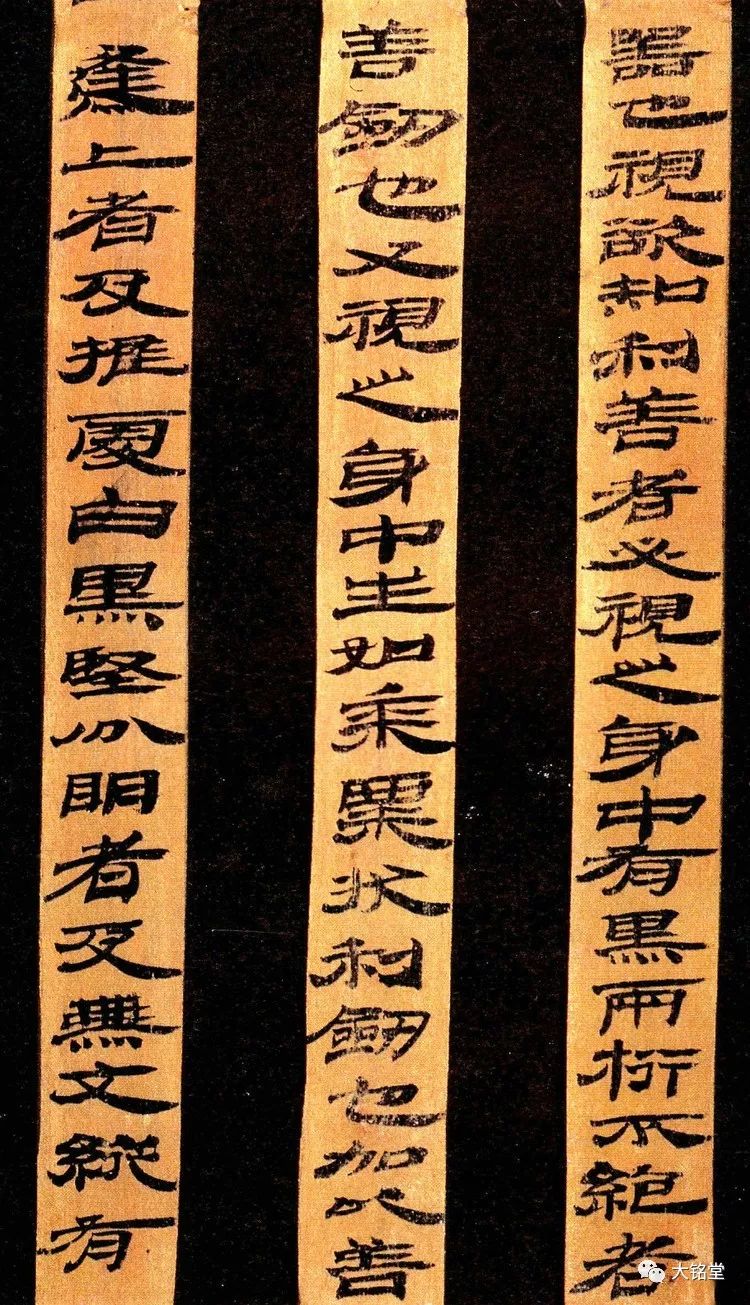 器也視欲知利善者必視之身中有黑兩桁不絕者
善劍也又視之身中生如黍粟狀利劍也加以善
上者及推處白黑堅分明者及無文縱有
大铭堂